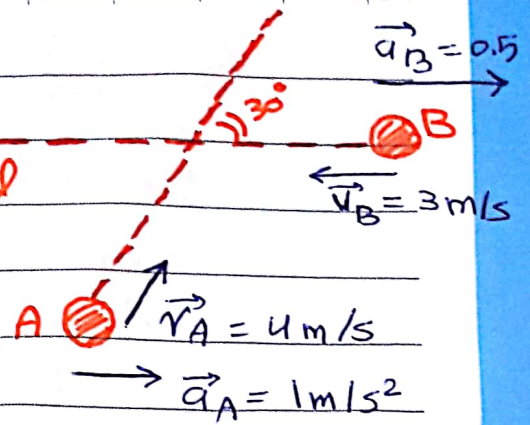 a⃗_B = 0.5
30°
B
v⃗_B = 3 m/s
A
v⃗_A = 4 m/s
a⃗_A = 1 m/s²